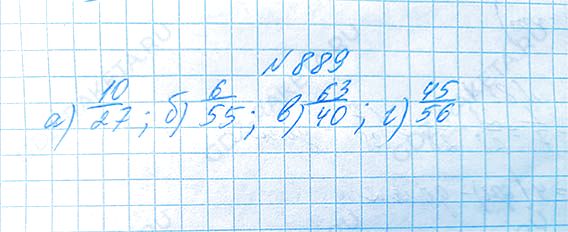 № 889
а) 10/27; б) 6/55; в) 63/40; г) 45/56